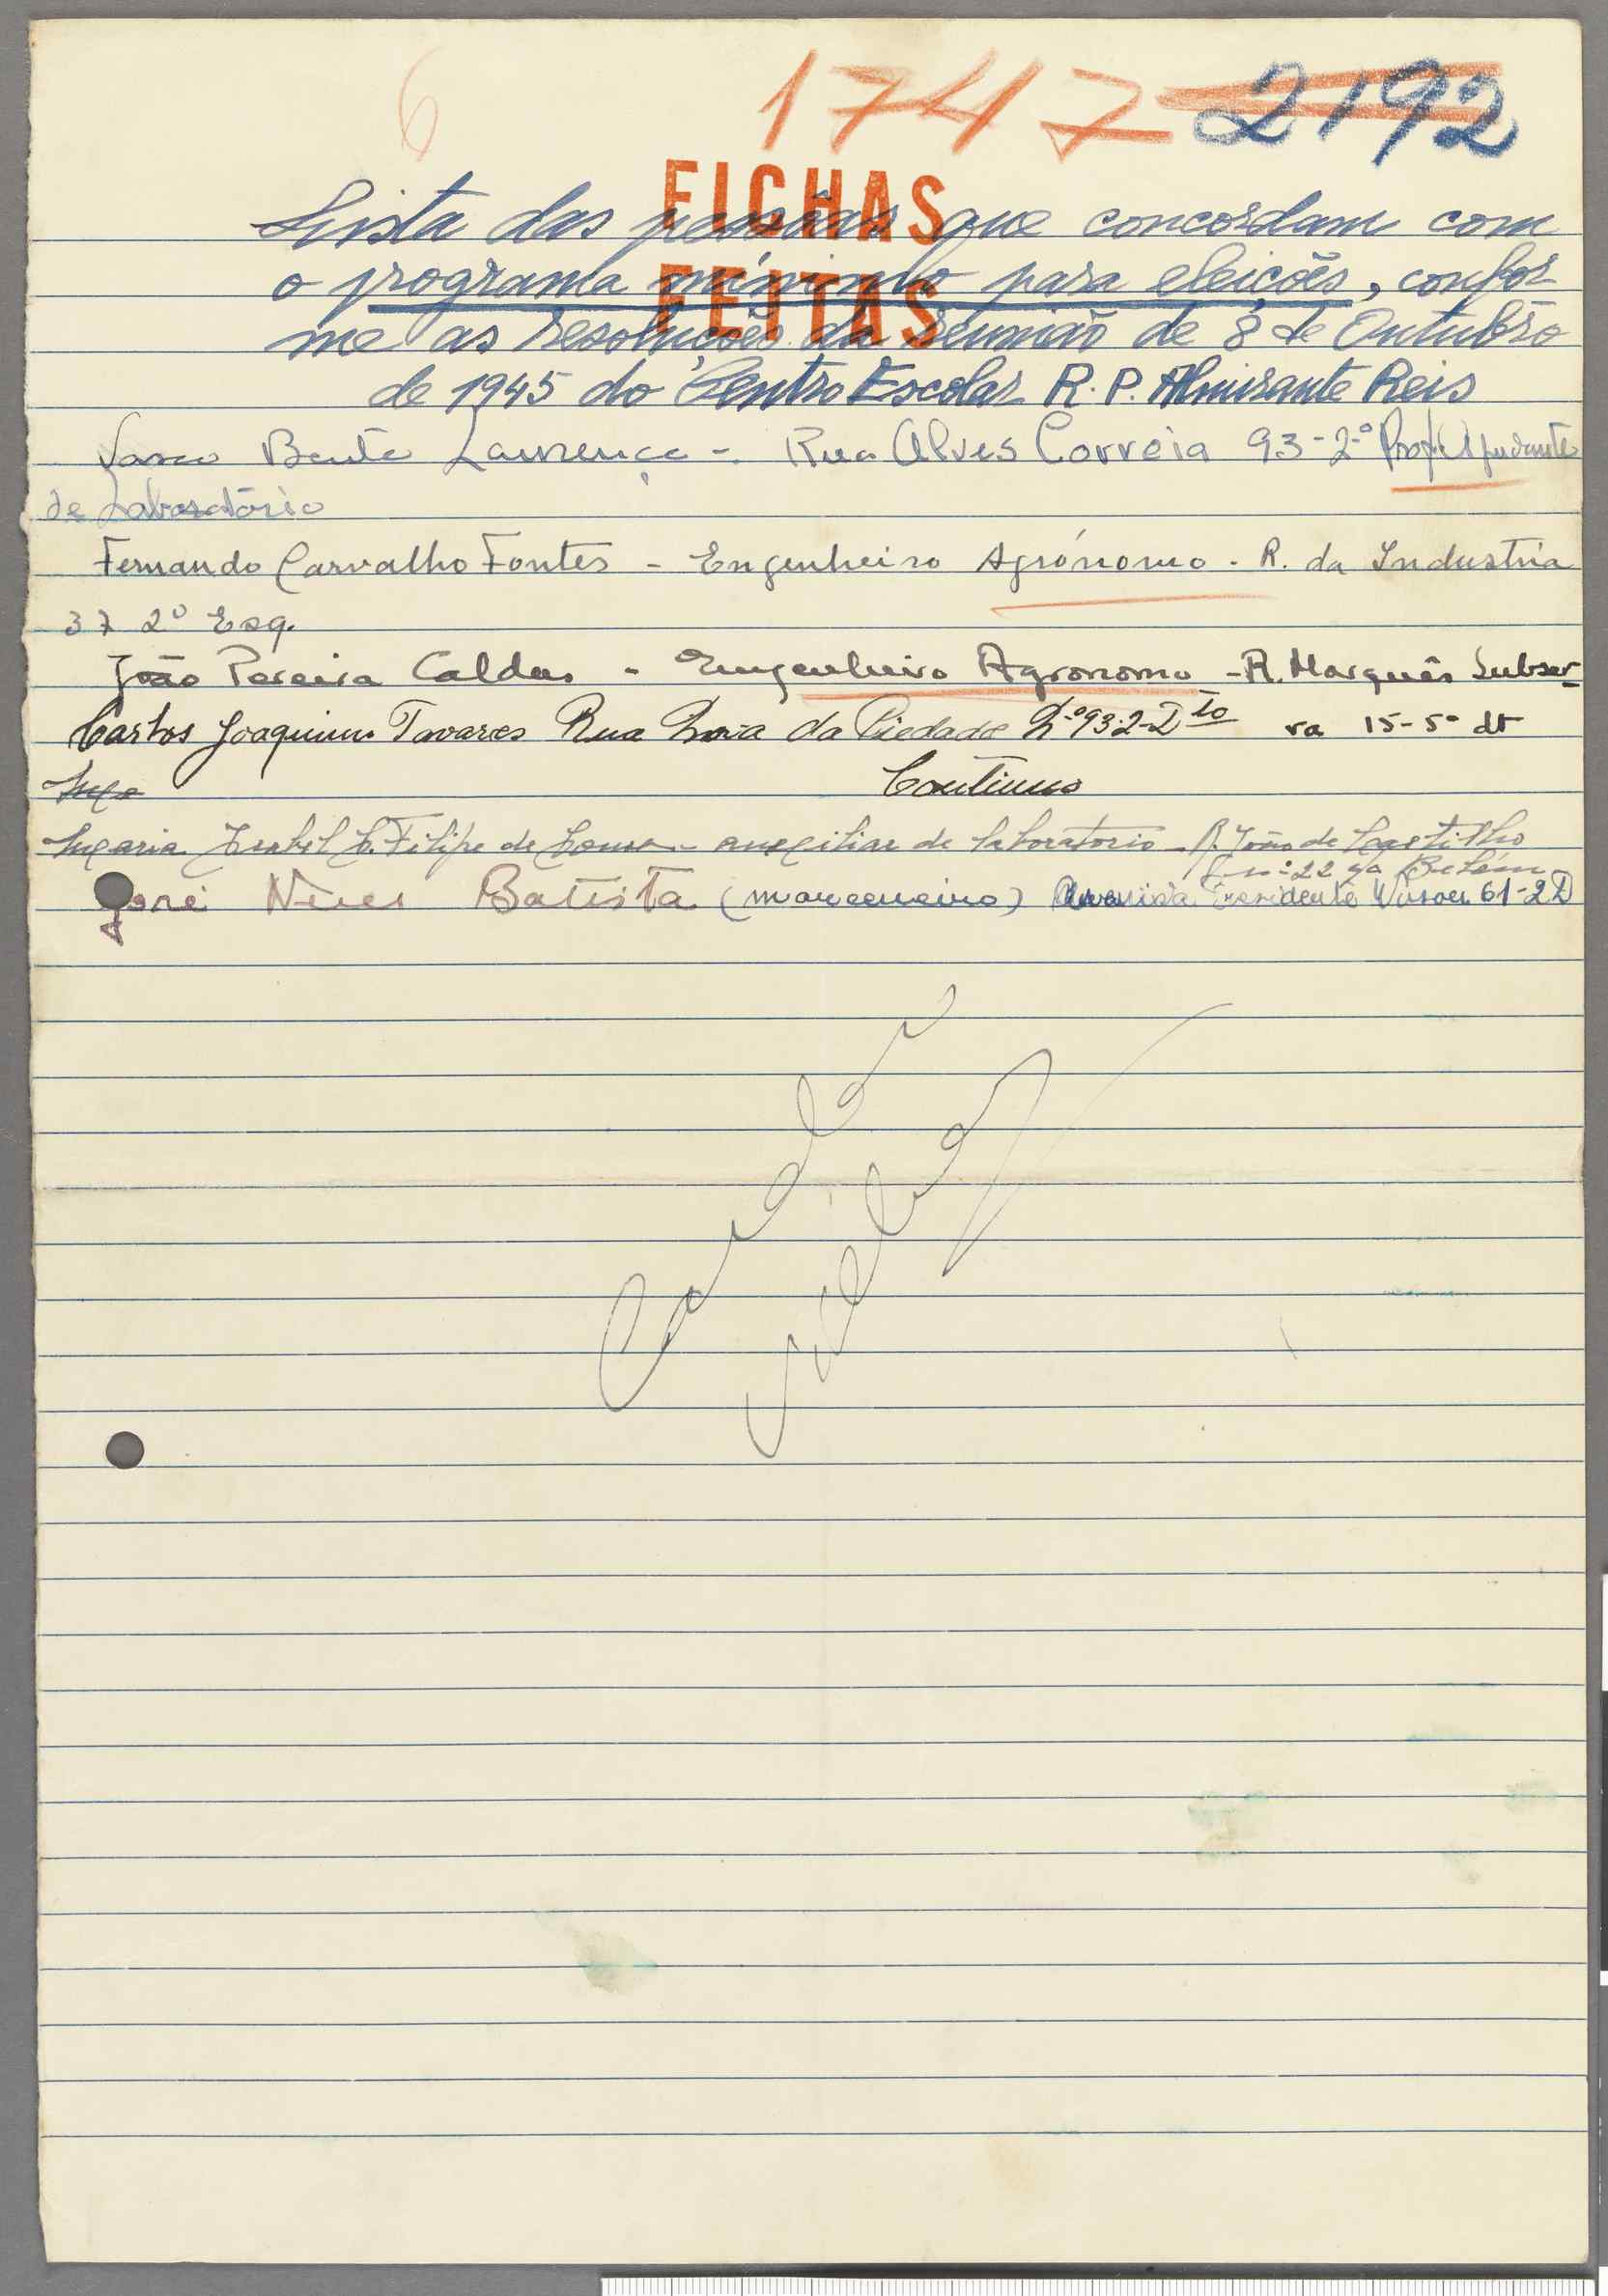 6
1747 2192
FICHAS
FEITAS
Lista das pessôas que concordam com
o programa mínimo para eleições, confor-
me as resoluções da reunião de 8 de Outubro
de 1945 do Centro Escolar R. P. Almirante Reis
Vasco Bento Lourenço - Rua Alves Correia 93-2º Prof. Ajudante
de Laboratório
Fernando Carvalho Fontes - Engenheiro Agrónomo - R. da Industria
37 2º Esq.
João Pereira Caldas - Engenheiro Agronomo - R. Marquês Subser-
Carlos Joaquim Tavares Rua Nova da Piedade Nº 93-2-Dto va 15-5º dt
Continuo
Maria Isabel C. Filipe de - auxiliar de laboratorio - R. João de Castilho
nº 22 Belém
José Neves Batista (marceneiro) Avenida Presidente Wilson 61-2D